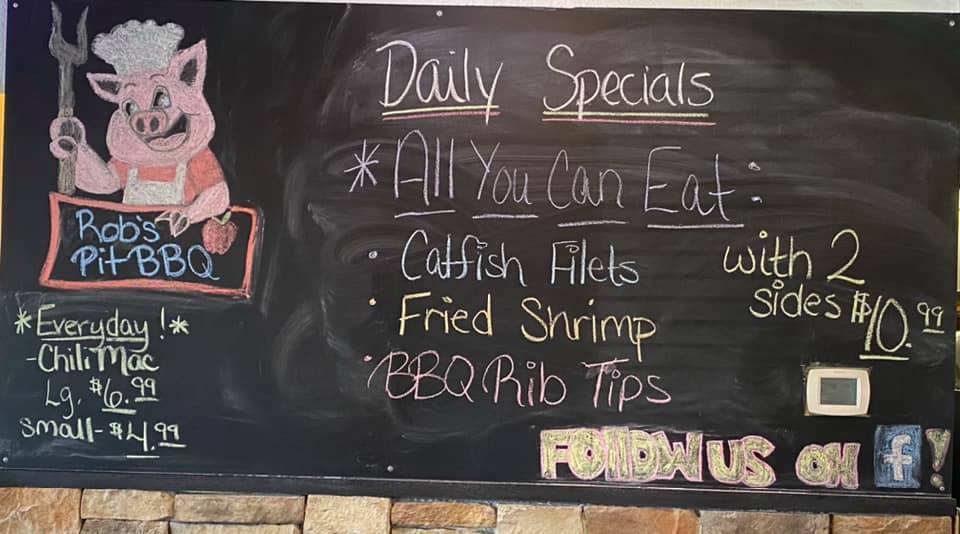 Daily Specials
* All You Can Eat:
• Catfish Filets
• Fried Shrimp
• BBQ Rib Tips
with 2
sides $10.99
Rob's
Pit BBQ
*Everyday!*
- Chili Mac
Lg. $6.99
small - $4.99
FOllOW US ON f!